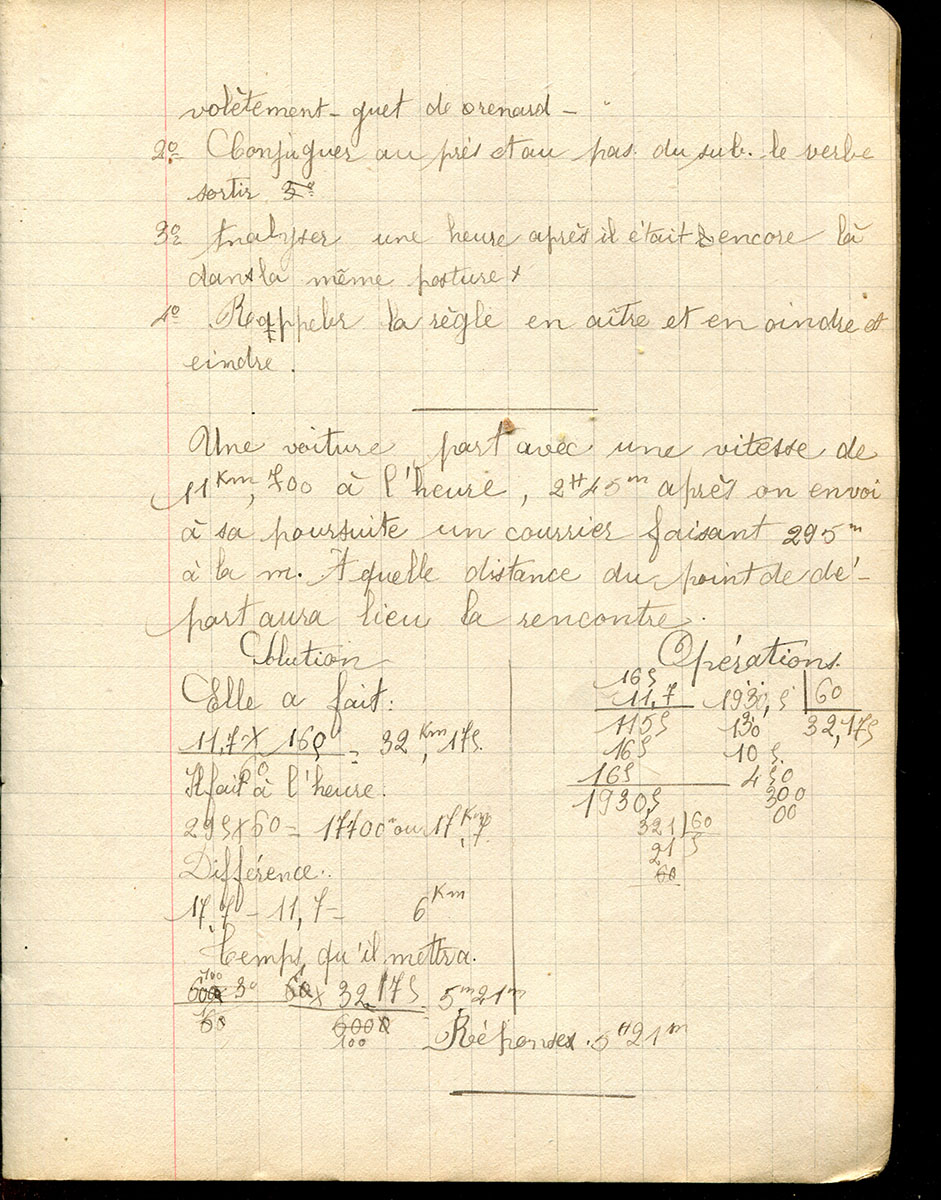 volètement - guet de renard -
2º Conjuguer au prés et au pas. du sub. le verbe
sortir
3º Analyser une heure après il était encore là
dans la même posture
4º Rappeler la règle en aître et en oindre et
eindre.
Une voiture part avec une vitesse de
11Km,700 à l'heure, 2H45m après on envoi
à sa poursuite un courrier faisant 295m
à la m. A quelle distance du point de dé-
part aura lieu la rencontre.
Solution
Elle a fait:
11,7 X 165 = 32Km,175.
60
Il fait à l'heure.
295x60 = 17700m ou 17Km,7
Différence.
17,7 - 11,7 = 6Km
Temps qu'il mettra.
60 x 32,175 5m21m
6000
100
Réponse. 5H21m
Opérations.
165
11,7
1155
165
165
1930,5
1930,5 60
130 32,175
10 5
450
300
00
321 60
21 5
60